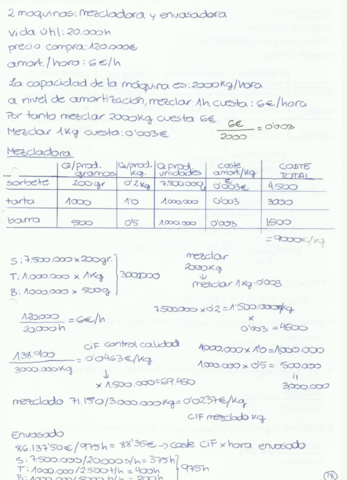 2 maquinas: mezcladora y envasadora
vida útil: 20.000h
precio compra: 120.000€
amort./hora: 6€/h
La capacidad de la máquina es: 2000kg/hora
a nivel de amortización, mezclar 1h cuesta: 6€/hora
Por tanto mezclar 2000kg cuesta 6€
Mezclar 1kg cuesta: 0'003€
6€/2000 = 0'003
Mezcladora
Q/prod. gramos Q/prod. kg. Q/prod. unidades coste amort/kg COSTE TOTAL
sorbete 200gr 0'2kg 7.500.000 0'003€ 4500
tarta 1000 1'0 1.000.000 0'003 3000
barra 500 0'5 1.000.000 0'003 1500
= 9000€/kg
S: 7.500.000 x 200gr.
T: 1.000.000 x 1kg
B: 1.000.000 x 500g
mezclar
2000kg
↓
mezclar 1kg: 0'003
7.500.000 x 0'2 = 1.500.000kg
x
0'003 = 4500
120.000/20.000h = 6€/h
CIF control calidad
138.900/3.000.000kg = 0'0463€/kg
↓
x 1.500.000 = 69.450
1000.000 x 1'0 = 1.000.000
1.000.000 x 0'5 = 500.000
3.000.000
mezclado 71.150/3.000.000kg = 0'0237€/kg
CIF mezclado kg
Envasado
86.137'50€/975h = 88'35€ → coste CIF x hora envasado
S: 7.500.000/20000 s/h = 375h
T: 1.000.000/2500 t/h = 400h
975h